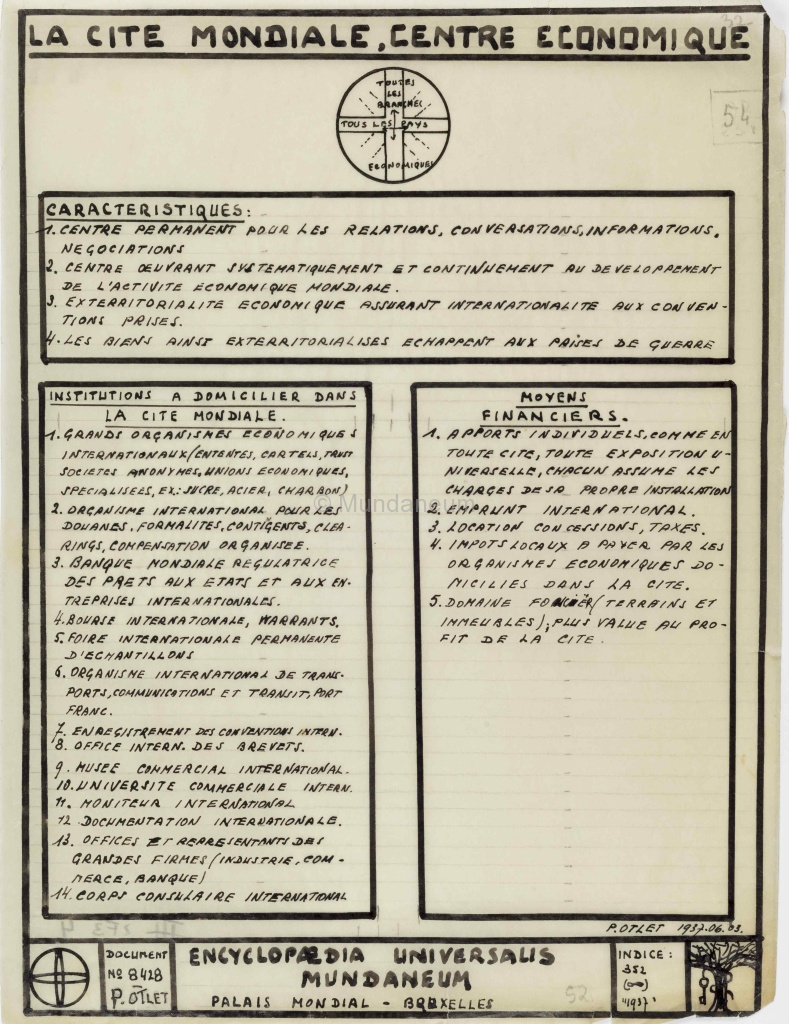 32
LA CITE MONDIALE, CENTRE ECONOMIQUE
TOUTES
LES
BRANCHES
TOUS LES PAYS
ECONOMIQUES
54
CARACTERISTIQUES:
1. CENTRE PERMANENT POUR LES RELATIONS, CONVERSATIONS, INFORMATIONS.
NEGOCIATIONS
2. CENTRE ŒUVRANT SYSTEMATIQUEMENT ET CONTINUEMENT AU DEVELOPPEMENT
DE L'ACTIVITE ECONOMIQUE MONDIALE.
3. EXTERRITORIALITE ECONOMIQUE ASSURANT INTERNATIONALITE AUX CONVEN-
TIONS PRISES.
4. LES BIENS AINSI EXTERRITORIALISES ECHAPPENT AUX PRISES DE GUERRE
INSTITUTIONS A DOMICILIER DANS
LA CITE MONDIALE.
1. GRANDS ORGANISMES ECONOMIQUES
INTERNATIONAUX (ENTENTES, CARTELS, TRUST
SOCIETES ANONYMES, UNIONS ECONOMIQUES,
SPECIALISEES, EX: SUCRE, ACIER, CHARBON)
2. ORGANISME INTERNATIONAL POUR LES
DOUANES, FORMALITES, CONTIGENTS, CLEA-
RINGS, COMPENSATION ORGANISEE.
3. BANQUE MONDIALE REGULATRICE
DES PRETS AUX ETATS ET AUX EN-
TREPRISES INTERNATIONALES.
4. BOURSE INTERNATIONALE, WARRANTS.
5. FOIRE INTERNATIONALE PERMANENTE
D'ECHANTILLONS
6. ORGANISME INTERNATIONAL DE TRANS-
PORTS, COMMUNICATIONS ET TRANSIT, PORT
FRANC.
7. ENREGISTREMENT DES CONVENTIONS INTERN.
8. OFFICE INTERN. DES BREVETS.
9. MUSEE COMMERCIAL INTERNATIONAL.
10. UNIVERSITE COMMERCIALE INTERN.
11. MONITEUR INTERNATIONAL
12 DOCUMENTATION INTERNATIONALE.
13. OFFICES ET REPRESENTANTS DES
GRANDES FIRMES (INDUSTRIE, COM-
MERCE, BANQUE)
14. CORPS CONSULAIRE INTERNATIONAL
MOYENS
FINANCIERS.
1. APPORTS INDIVIDUELS, COMME EN
TOUTE CITE, TOUTE EXPOSITION U-
NIVERSELLE, CHACUN ASSUME LES
CHARGES DE SA PROPRE INSTALLATION
2. EMPRUNT INTERNATIONAL.
3. LOCATION CONCESSIONS, TAXES.
4. IMPOTS LOCAUX A PAYER PAR LES
ORGANISMES ECONOMIQUES DO-
MICILIES DANS LA CITE.
5. DOMAINE FONCIER (TERRAINS ET
IMMEUBLES); PLUS VALUE AU PRO-
FIT DE LA CITE.
© Mundaneum
P. OTLET 1937.06.03.
DOCUMENT
No 8428
P. OTLET
ENCYCLOPÆDIA UNIVERSALIS
MUNDANEUM
PALAIS MONDIAL - BRUXELLES
52
INDICE:
352
(∞)
"1937"